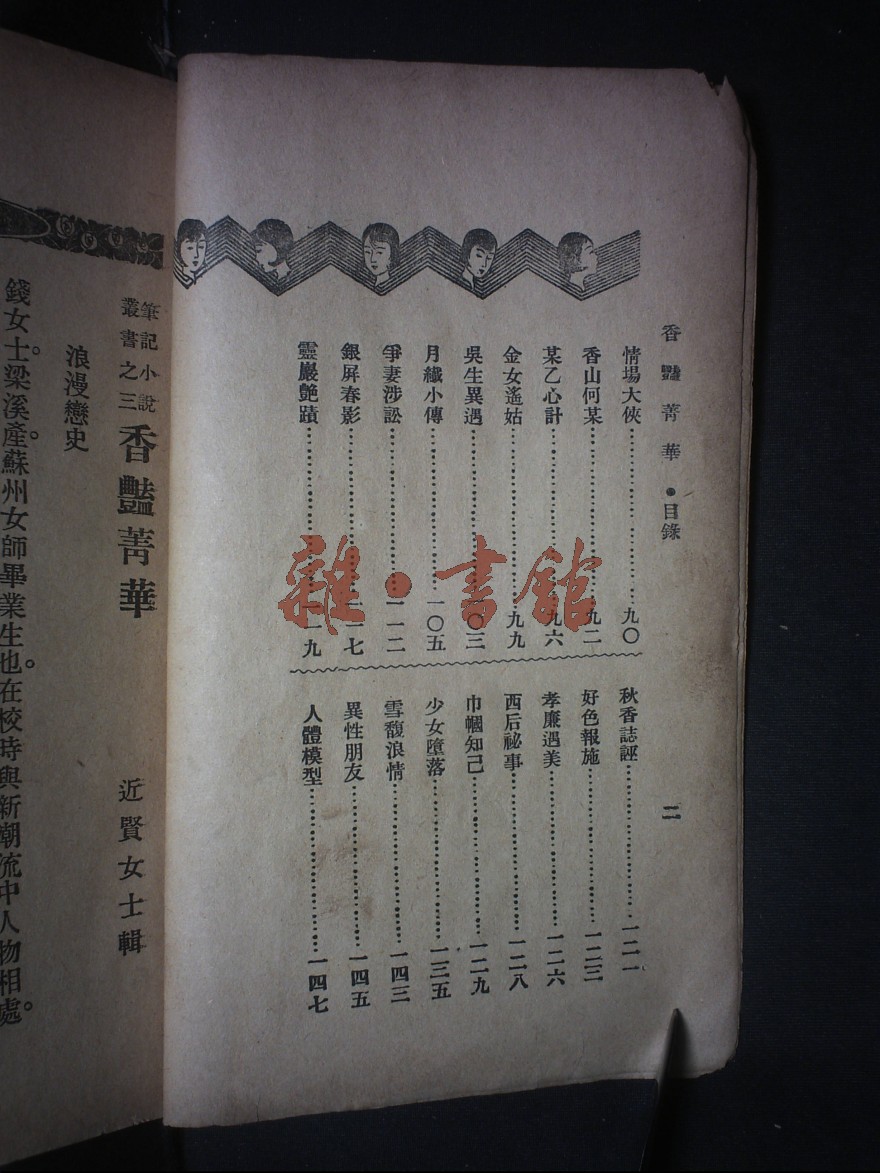 香豔菁華●目錄
二
情場大俠……九〇
香山何某……九二
某乙心計……九六
金女遙姑……九九
吳生異遇……一〇三
月纖小傳……一〇五
爭妻涉訟……一一二
銀屏春影……一一七
靈巖艷蹟……一一九
秋香誌誣……一二一
好色報施……一二三
孝廉遇美……一二六
西后祕事……一二八
巾幗知己……一二九
少女墮落……一三五
雪馥浪情……一四三
異性朋友……一四五
人體模型……一四七
雜·書館
筆記小說
叢書之三
香豔菁華
近賢女士輯
浪漫戀史
錢女士。梁溪產。蘇州女師畢業生也。在校時與新潮流中人物相處。